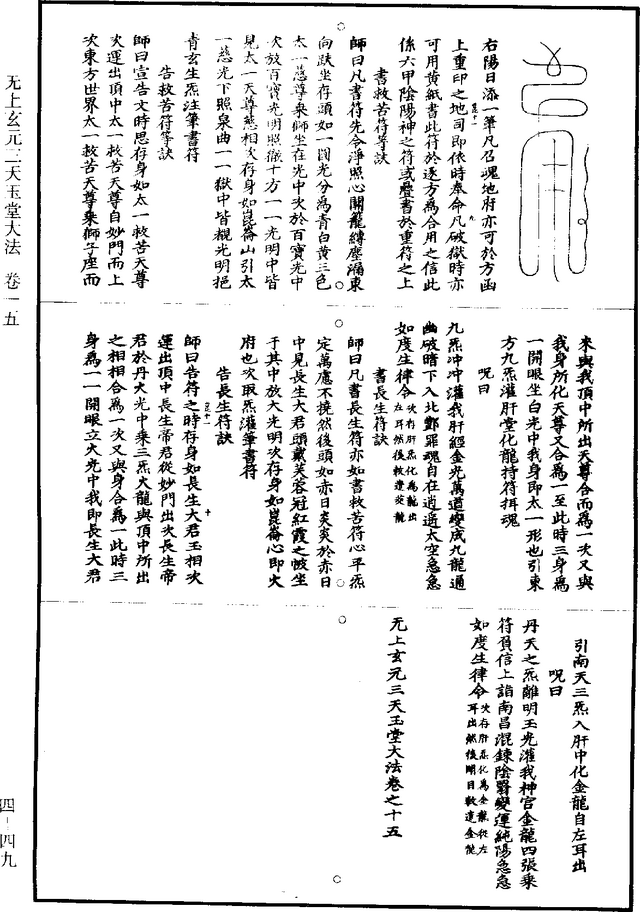 右陽日添一筆凡召魂地府亦可於方函
上重印之地司即依時奉命凡破獄時亦
可用黃紙書此符於逐方為合用之信此
係六甲陰陽神之符或疊書於重符之上
書救苦符等訣
師曰凡書符先令淨照心開籠縛塵漏東
向趺坐存頭如一圓光分為青白黃三色
太一慈尊乘獅坐在光中次於百寶光中
次放百寶光明照徹十方一一光明中皆
見太一天尊慈相次存身如崑崙山引太
一慈光下照泉曲一一獄中皆覩光明挹
青玄生炁注筆書符
告救苦符等訣
師曰宣告文時思存身如太一救苦天尊
次運出頂中太一救苦天尊自妙門而上
次東方世界太一救苦天尊乘獅子座而
來與我頂中所出天尊合而為一次又與
我身所化天尊又合為一至此時三身為
一開眼坐白光中我身即太一形也引東
方九炁灌肝堂化龍持符拜魂
呪曰
九炁沖沖灌我肝經金光萬道變成九龍通
幽破暗下入北酆罪魂自在逍遙太空急急
如度生律令次存肝炁化為龍出左耳然後敕遣炎龍
書長生符訣
師曰凡書長生符亦如書救苦符心平炁
定萬慮不撓然後頭如赤日炎炎於赤日
中見長生大君頭戴芙蓉冠紅霞之帔坐
于其中放大光明次存身如崑崙心即火
府也次取炁灌筆書符
告長生符訣
師曰告符之時存身如長生大君玉相次
運出頂中長生帝君從妙門出次長生帝
君於丹天光中乘三炁火龍與頂中所出
之相相合為一次又與身合為一此時三
身為一一開眼立火光中我即長生大君
引南天三炁入肝中化金龍自左耳出
呪曰
丹天之炁離明玉光灌我神宮金龍四張乘
符負信上詣南昌混鍊陰翳變運純陽急急
如度生律令次存肝炁化為金龍從左耳出然後開目敕遣金龍
无上玄元三天玉堂大法卷之十五
无上玄元三天玉堂大法 卷一五
四-四九